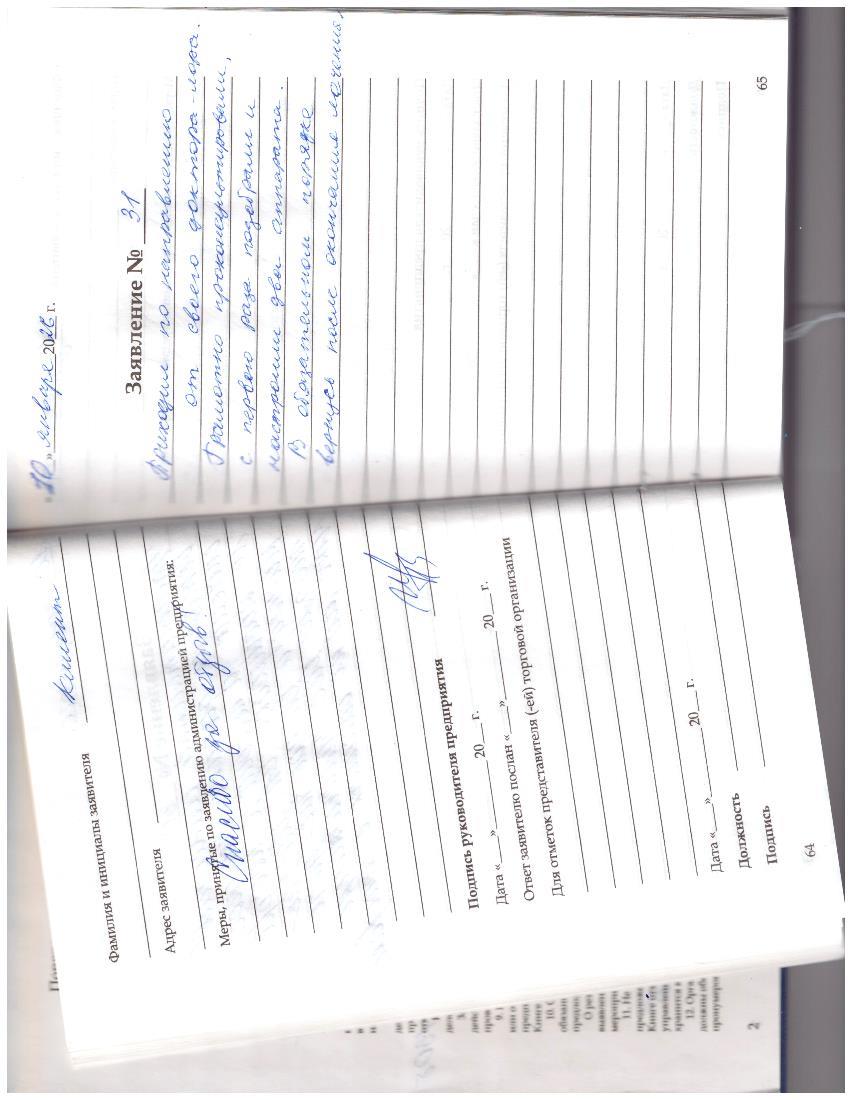 Фамилия и инициалы заявителя Клиент
Адрес заявителя
Меры, принятые по заявлению администрацией предприятия:
Спасибо за отзыв!
Подпись руководителя предприятия
Дата «___»__________ 20___ г.
Ответ заявителю послан «___»__________ 20___ г.
Для отметок представителя (-ей) торговой организации
Дата «___»__________ 20___ г.
Должность
Подпись
64
«30» января 2026 г.
Заявление № 31
Приходил по направлению
от своего доктора-лора.
Грамотно проконсультировали,
с первого раза подобрали и
настроили два аппарата.
В обязательном порядке
вернусь после окончания лечения.
65
2